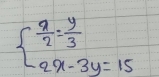 x/2 = y/3
2x - 3y = 15